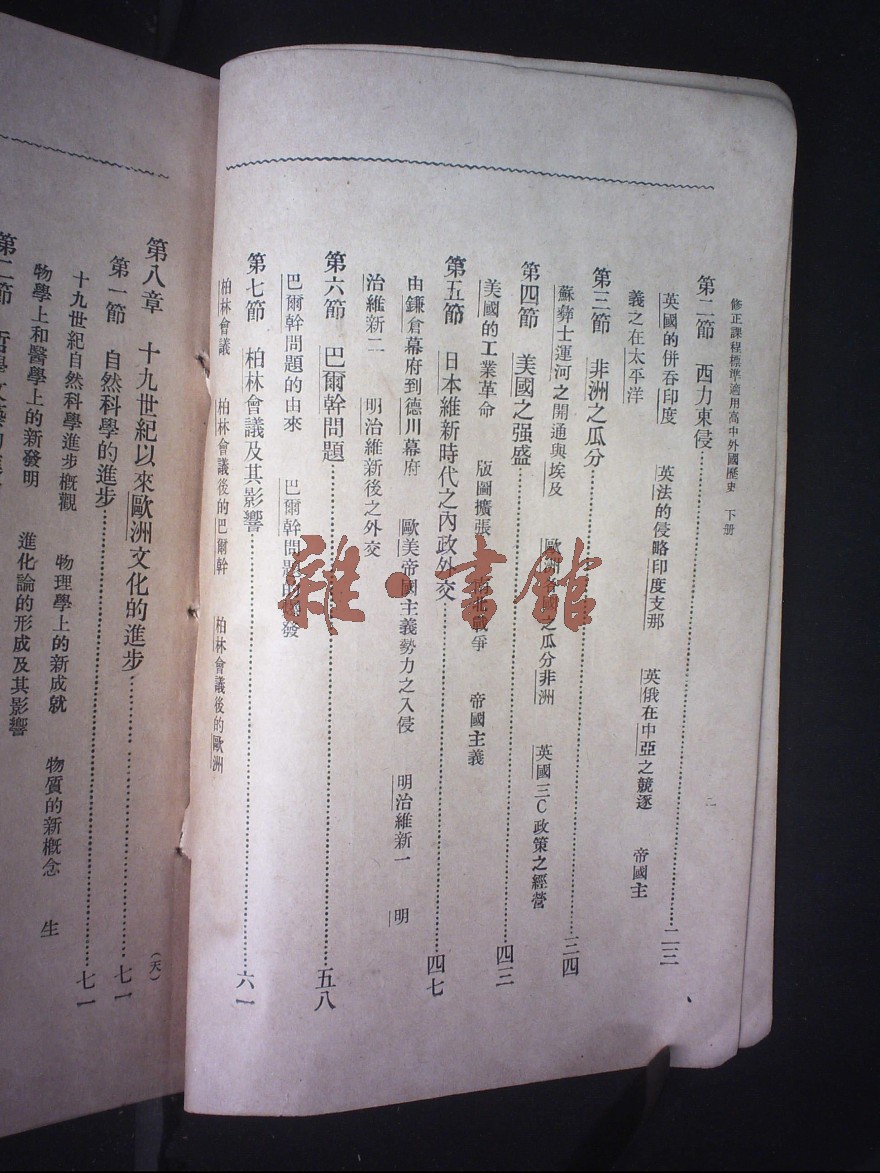 修正課程標準適用高中外國歷史　下册
二
第二節　西力東侵……二三
英國的併吞印度　英法的侵略印度支那　英俄在中亞之競逐　帝國主
義之在太平洋
第三節　非洲之瓜分……三四
蘇彝士運河之開通與埃及　歐洲　之瓜分非洲　英國三C政策之經營
第四節　美國之强盛……四三
美國的工業革命　版圖擴張　南北戰爭　帝國主義
第五節　日本維新時代之內政外交……四七
由鎌倉幕府到德川幕府　歐美帝國主義勢力之入侵　明治維新一　明
治維新二　明治維新後之外交
第六節　巴爾幹問題……五八
巴爾幹問題的由來　巴爾幹問題的　發
第七節　柏林會議及其影響……六一
柏林會議　柏林會議後的巴爾幹　柏林會議後的歐洲
第八章　十九世紀以來歐洲文化的進步……七一
(天)
第一節　自然科學的進步……七一
十九世紀自然科學進步概觀　物理學上的新成就　物質的新概念　生
物學上和醫學上的新發明　進化論的形成及其影響
第二節
雜·書館